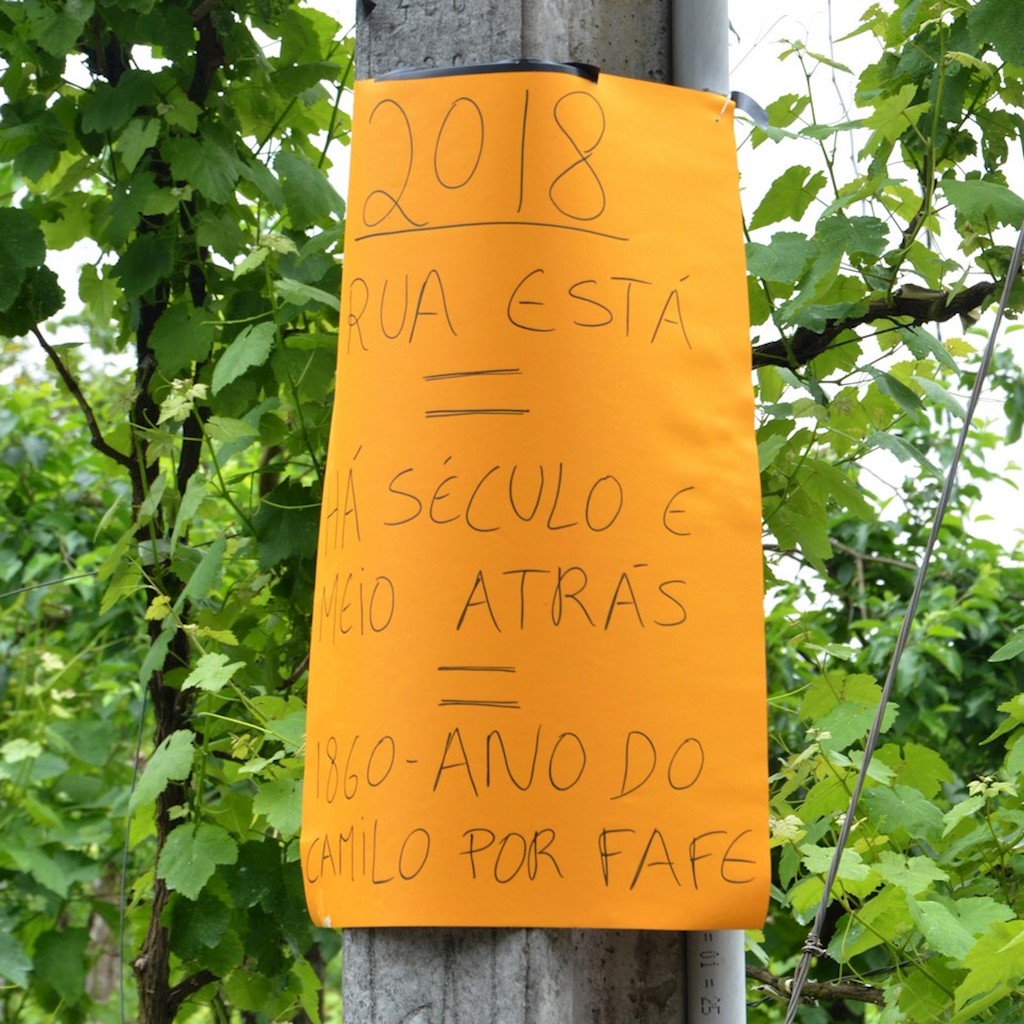 2018
RUA ESTÁ
=
HÁ SÉCULO E
MEIO ATRÁS
=
1860-ANO DO
CAMILO POR FAFE